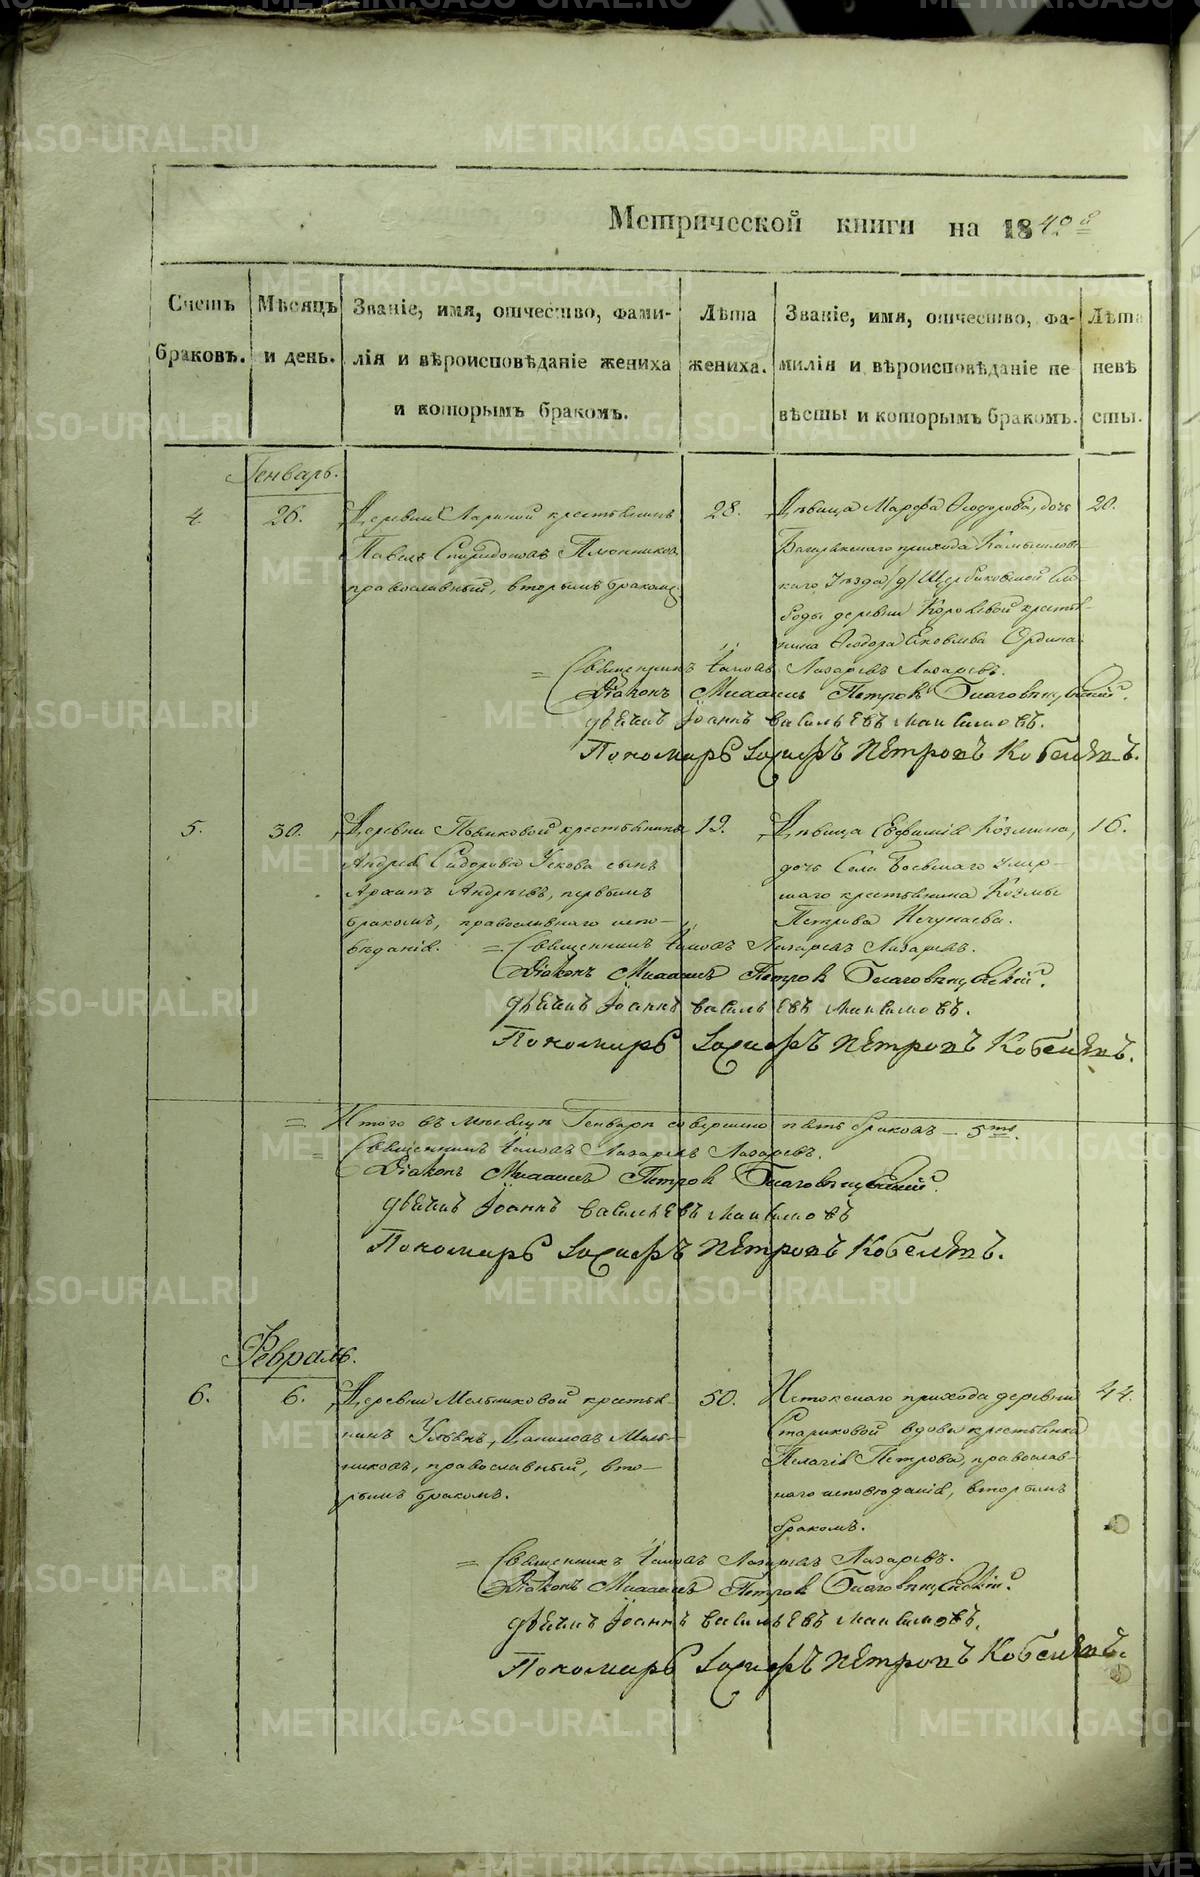 Метрической книги на 1840й
Счетъ браковъ.
Мѣсяцъ и день.
Званіе, имя, отчество, фами-
лія и вѣроисповѣданіе жениха
и которымъ бракомъ.
Лѣта
жениха.
Званіе, имя, отчество, фа-
милія и вѣроисповѣданіе не
вѣсты и которымъ бракомъ.
Лѣта
невѣ
сты.
Генварь.
4. 26.
Деревни Лариной крестьянинъ
Павелъ Спиридоновъ Плотниковъ
православный, вторымъ бракомъ.
28.
Дѣвица Марѳа Ѳеодорова, дочь
прихода Камышловс-
каго уѣзда Щербаковской сло
боды деревни Королевой крестья-
нина Ѳеодора Яковлева
20.
Священникъ Іаковъ Лазаревъ Лазаревъ.
Діаконъ Михаилъ Петровъ Благовѣщенскій.
Дьячикъ Іоаннъ Васильевъ Максимовъ.
Пономарь Петровъ
5. 30.
Деревни Пьянковой крестьянина
Андрея Сидорова Ускова сынъ
Андреевъ, первымъ
бракомъ, православнаго испо-
вѣданія.
19.
Дѣвица Евфимія Козмина,
дочь Села Боевскаго умер-
шаго крестьянина Козмы
Петрова Нечунаева.
16.
Священникъ Іаковъ Лазаревъ Лазаревъ.
Діаконъ Михаилъ Петровъ Благовѣщенскій.
Дьячикъ Іоаннъ Васильевъ Максимовъ.
Пономарь Петровъ
Итого въ мѣсяцѣ Генварѣ совершено пять браковъ — 5ть.
Священникъ Іаковъ Лазаревъ Лазаревъ.
Діаконъ Михаилъ Петровъ Благовѣщенскій.
Дьячикъ Іоаннъ Васильевъ Максимовъ
Пономарь Петровъ
Февраль.
6. 6.
Деревни Мельниковой крестья-
нинъ Мель-
никовъ, православный, вто-
рымъ бракомъ.
50.
Истокскаго прихода деревни
Стариковой вдова крестьянка
Пелагія Петрова, православ-
наго исповѣданія, вторымъ
бракомъ.
44.
Священникъ Іаковъ Лазаревъ Лазаревъ.
Діаконъ Михаилъ Петровъ Благовѣщенскій.
Дьячикъ Іоаннъ Васильевъ Максимовъ.
Пономарь Петровъ
METRIKI.GASO-URAL.RU